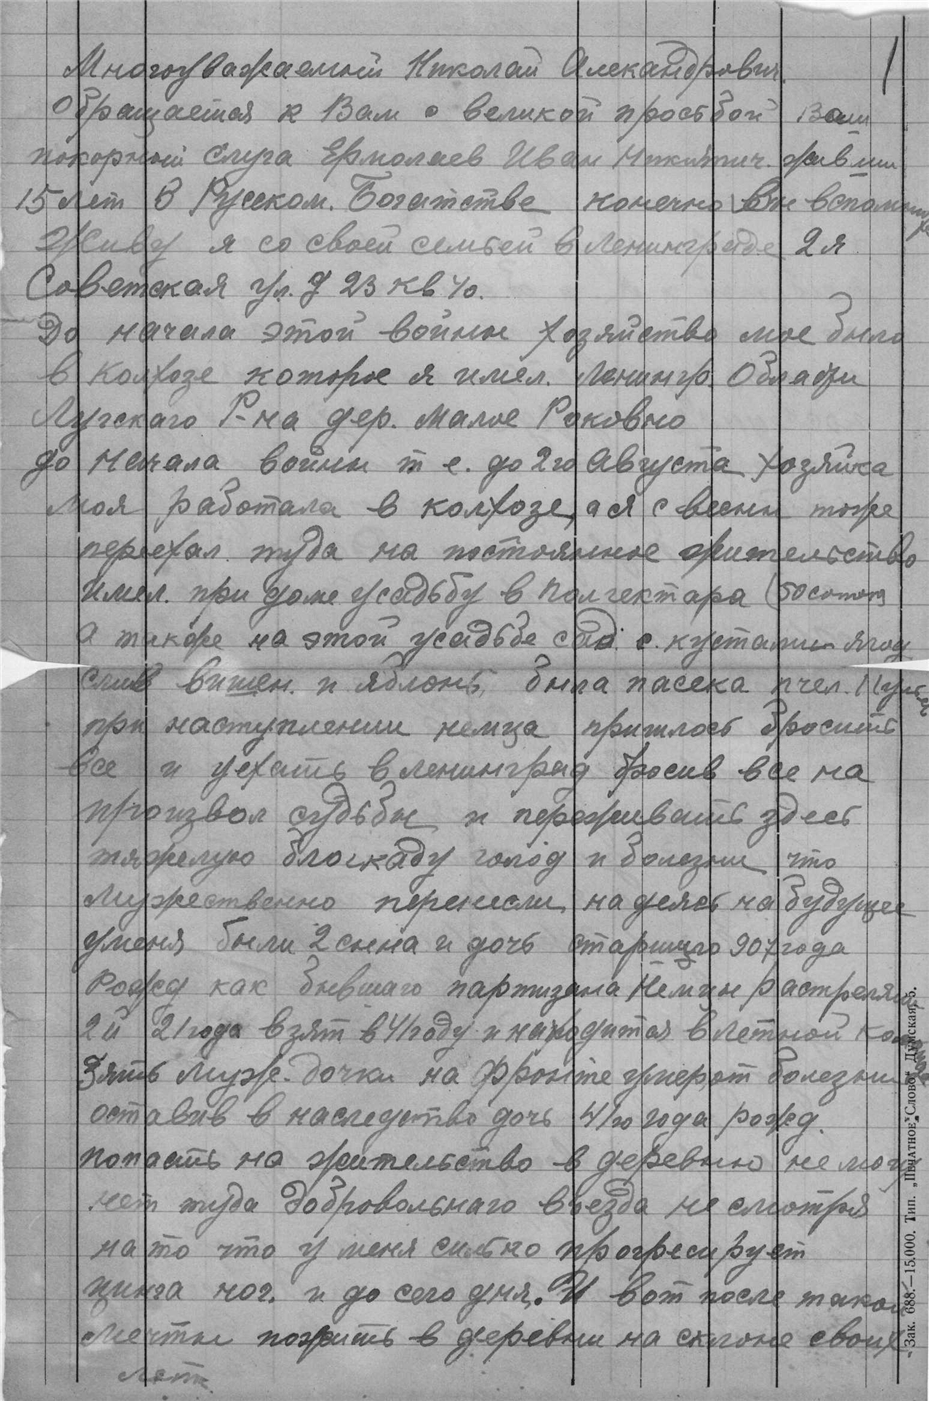 1
Многоуважаемый Николай Александрович.
Обращается к Вам с великой просьбой Ваш
покорный слуга Ермолаев Иван Никитич. живши
15 лет в Русском. Богатстве конечно Вы вспомни
Живу я со своей семьей в Ленинграде 2я
Советская ул. д 23 кв 40.
До начала этой войны хозяйство мое было
в колхозе которое я имел. Ленингр. Области
Лужскаго Р-на дер. Малое Раковно
до начала войны т е. до 2го Августа хозяйка
моя работала в колхозе, а я с весны тоже
переехал туда на постоянное жительство
имел. при доме усадьбу в полгектара (50 соток
а также на этой усадьбе сад с. кустами ягод
слив вишен. и яблонь, была пасека пчел.
при наступлении немца пришлось бросить
все и уехать в Ленинград бросив все на
произвол судьбы и переживать здесь
тяжелую блокаду голод и болезни что
мужественно перенесли надеясь на будущее
у меня были 2 сына и дочь старшаго 907 года
рожд как бывшаго партизана Немцы растреляли
2й 21 года взят в 41 году и находится в летной
Зять муж. дочки на фронте умерот болезни
оставив в наследство дочь 41го года рожд.
попасть на жительство в деревню не могу
нет туда добровольнаго въезда не смотря
на то что у меня сильно прогресирует
цинга ног. и до сего дня. И вот после такой
мечты пожить в деревни на склоне своих
лет
Зак. 688.—15.000. Тип. „Печатное Слово“ Думская, 5.